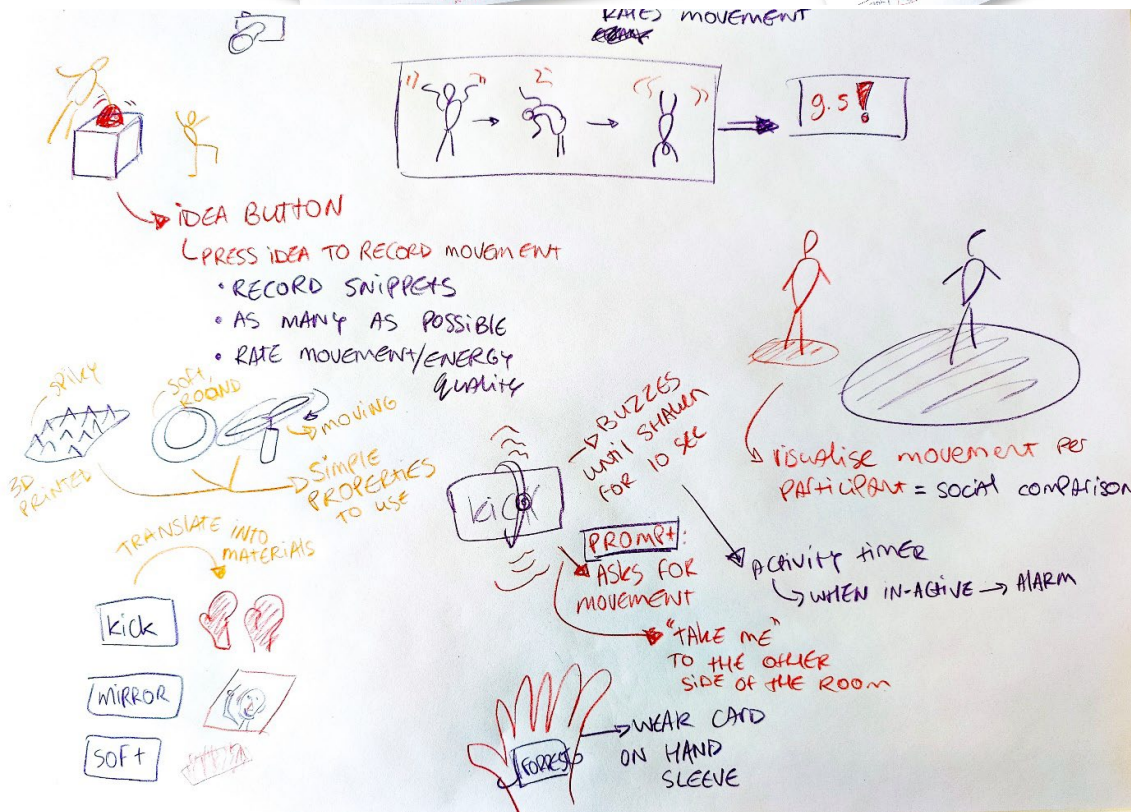 RATES MOVEMENT
9.5!
IDEA BUTTON
PRESS IDEA TO RECORD MOVEMENT
• RECORD SNIPPETS
• AS MANY AS POSSIBLE
• RATE MOVEMENT/ENERGY
QUALITY
SPIKY
SOFT,
ROUND
MOVING
3D
PRINTED
SIMPLE
PROPERTIES
TO USE
TRANSLATE INTO
MATERIALS
KICK
MIRROR
SOFT
KICK
BUZZES
UNTIL SHAKEN
FOR 10 SEC
PROMPT:
ASKS FOR
MOVEMENT
"TAKE ME"
TO THE OTHER
SIDE OF THE ROOM
ACTIVITY TIMER
WHEN IN-ACTIVE → ALARM
VISUALISE MOVEMENT PER
PARTICIPANT = SOCIAL COMPARISON
FORREST
WEAR CARD
ON HAND
SLEEVE